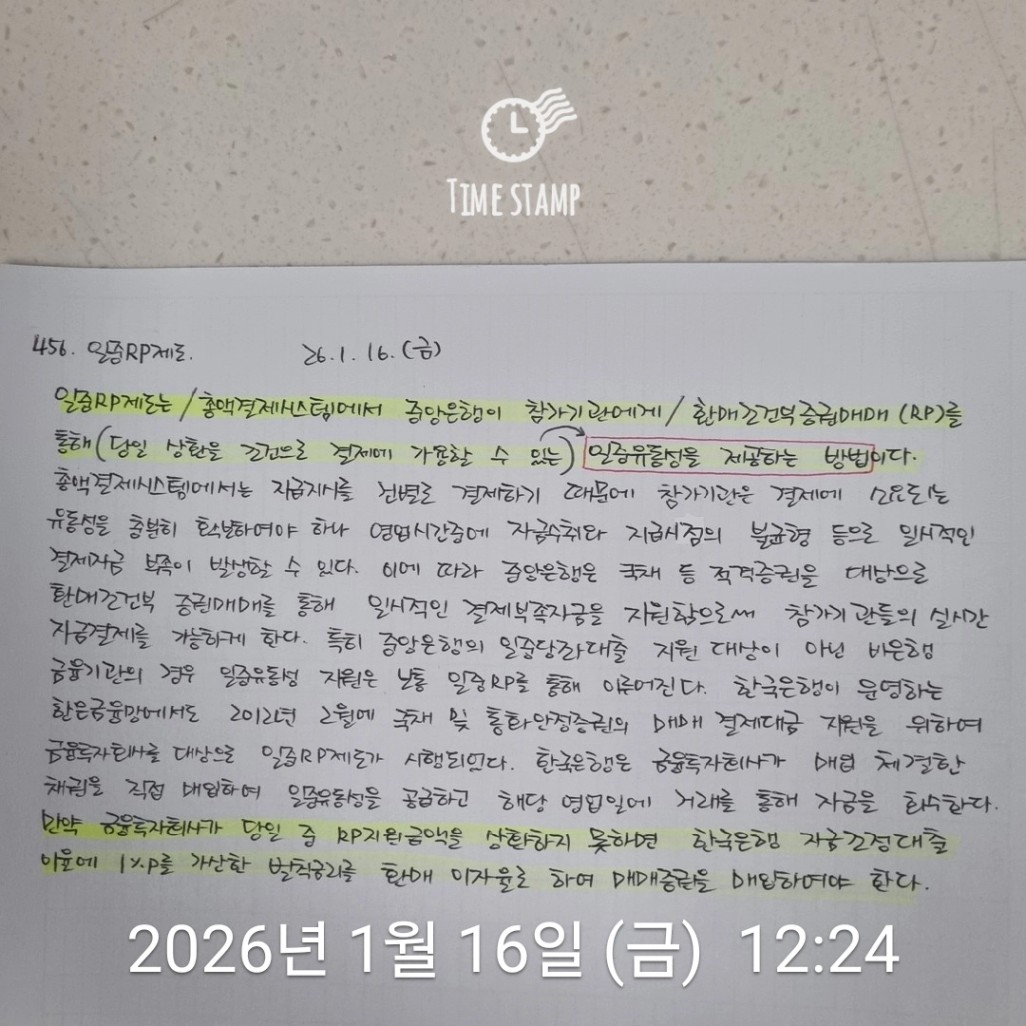 TIME STAMP
456. 일중RP제도. 26.1.16.(금)
일중RP제도는/총액결제시스템에서 중앙은행이 참가기관에게/환매조건부증권매매(RP)를
통해(당일 상환을 조건으로 결제에 가용할 수 있는) 일중유동성을 제공하는 방법이다.
총액결제시스템에서는 지급지시를 건별로 결제하기 때문에 참가기관은 결제에 소요되는
유동성을 충분히 확보하여야 하나 영업시간중에 자금수취와 지급시점의 불균형 등으로 일시적인
결제자금 부족이 발생할 수 있다. 이에 따라 중앙은행은 국채 등 적격증권을 대상으로
환매조건부 증권매매를 통해 일시적인 결제부족자금을 지원함으로써 참가기관들의 실시간
자금결제를 가능하게 한다. 특히 중앙은행의 일중당좌대출 지원 대상이 아닌 비은행
금융기관의 경우 일중유동성 지원은 보통 일중RP를 통해 이루어진다. 한국은행이 운영하는
한은금융망에서도 2012년 2월에 국채 및 통화안정증권의 매매 결제대금 지원을 위하여
금융투자회사를 대상으로 일중RP제도가 시행되었다. 한국은행은 금융투자회사가 매입 체결한
채권을 직접 매입하여 일중유동성을 공급하고 해당 영업일에 거래를 통해 자금을 회수한다.
만약 금융투자회사가 당일 중 RP지원금액을 상환하지 못하면 한국은행 자금조정대출
이율에 1%p를 가산한 벌칙금리를 환매 이자율로 하여 매매증권을 매입하여야 한다.
2026년 1월 16일 (금) 12:24